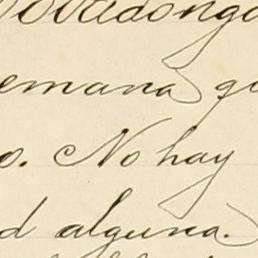 ovadonga
emana q
o. No hay
d alguna.